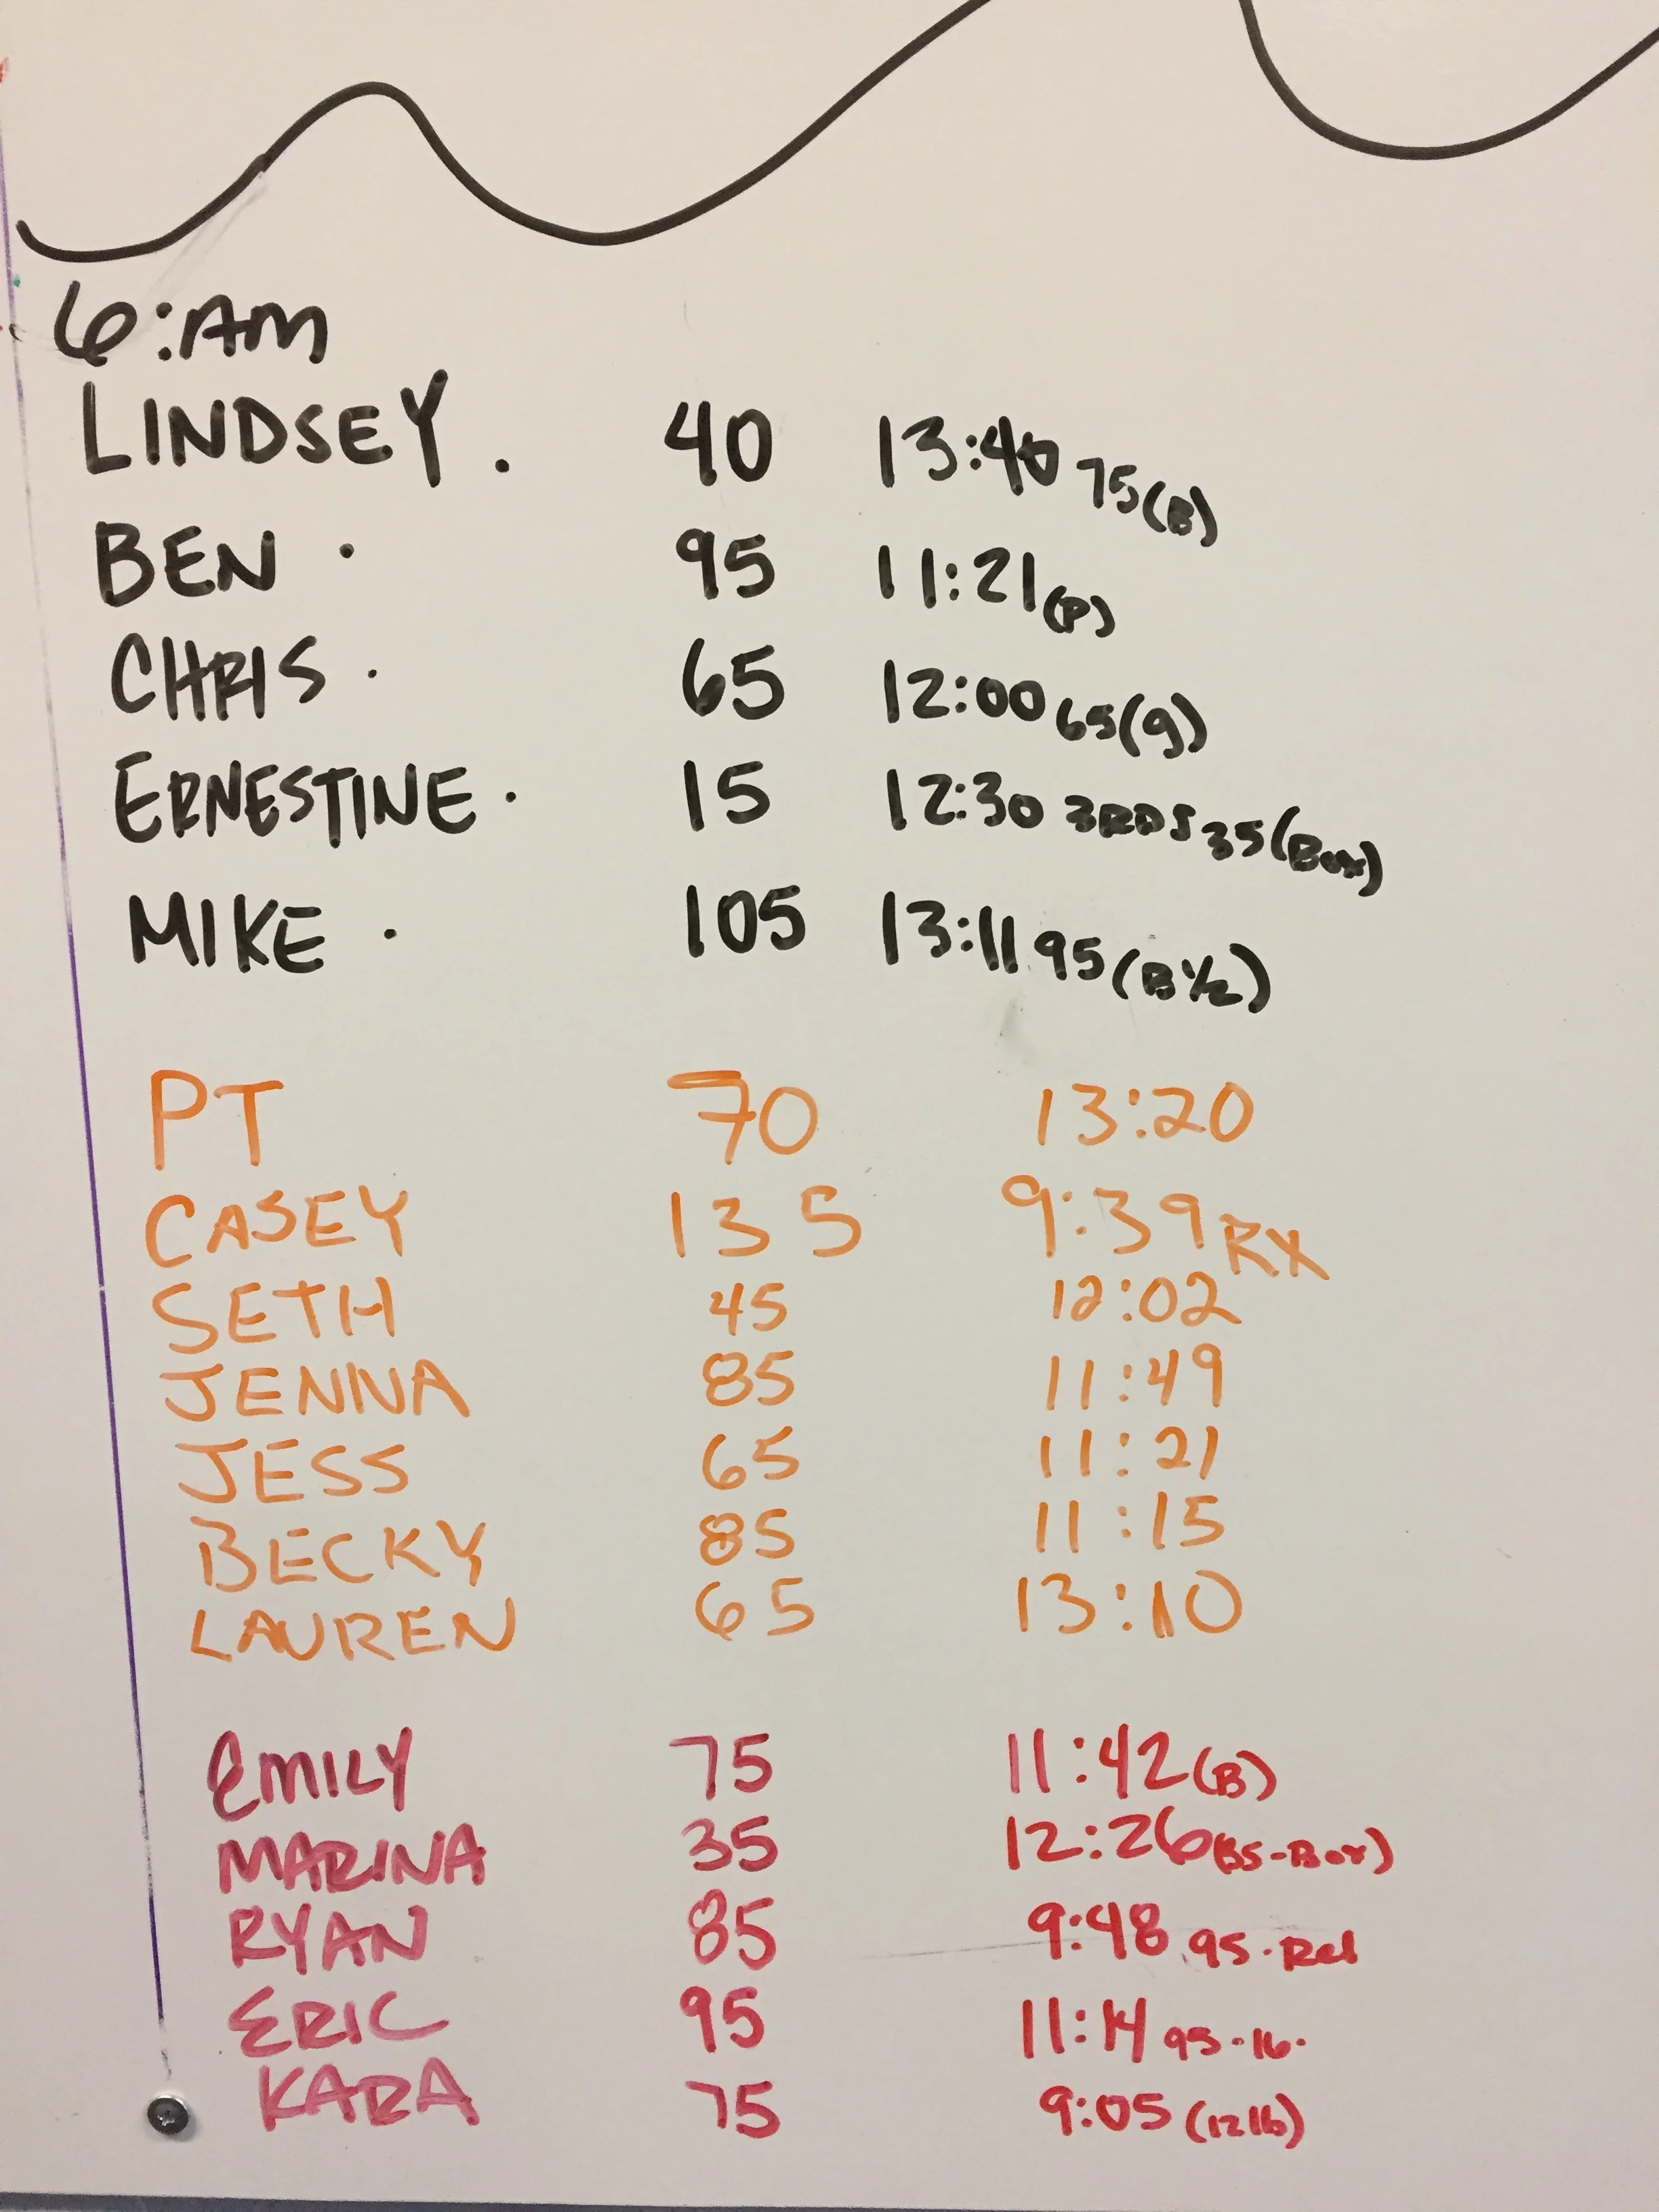 6:AM
LINDSEY. 40 13:40 75(B)
BEN . 95 11:21(P)
CHRIS . 65 12:00 65(9)
ERNESTINE . 15 12:30 3RDS 35(Box)
MIKE . 105 13:11 95(B½)
PT 70 13:20
CASEY 135 9:39 RX
SETH 45 12:02
JENNA 85 11:49
JESS 65 11:21
BECKY 85 11:15
LAUREN 65 13:10
EMILY 75 11:42(B)
MARINA 35 12:26 (35-Box)
RYAN 85 9:48 95.Red
ERIC 95 11:14 95.16.
KARA 75 9:05 (12lb)